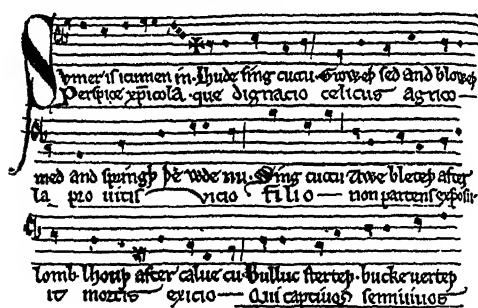 Sumer is icumen in. Lhude sing cucu. Groweþ sed and bloweþ
Perspice xp̄icola. que dignacio celicus agrico—
med and springþ þe wde nu. Sing cucu Awe bleteþ after
la pro uitis vicio filio— non parcens exposu-
lomb. lhouþ after calue cu. Bulluc sterteþ. bucke uerteþ
it mortis exicio— Qui captiuos semiuiuos